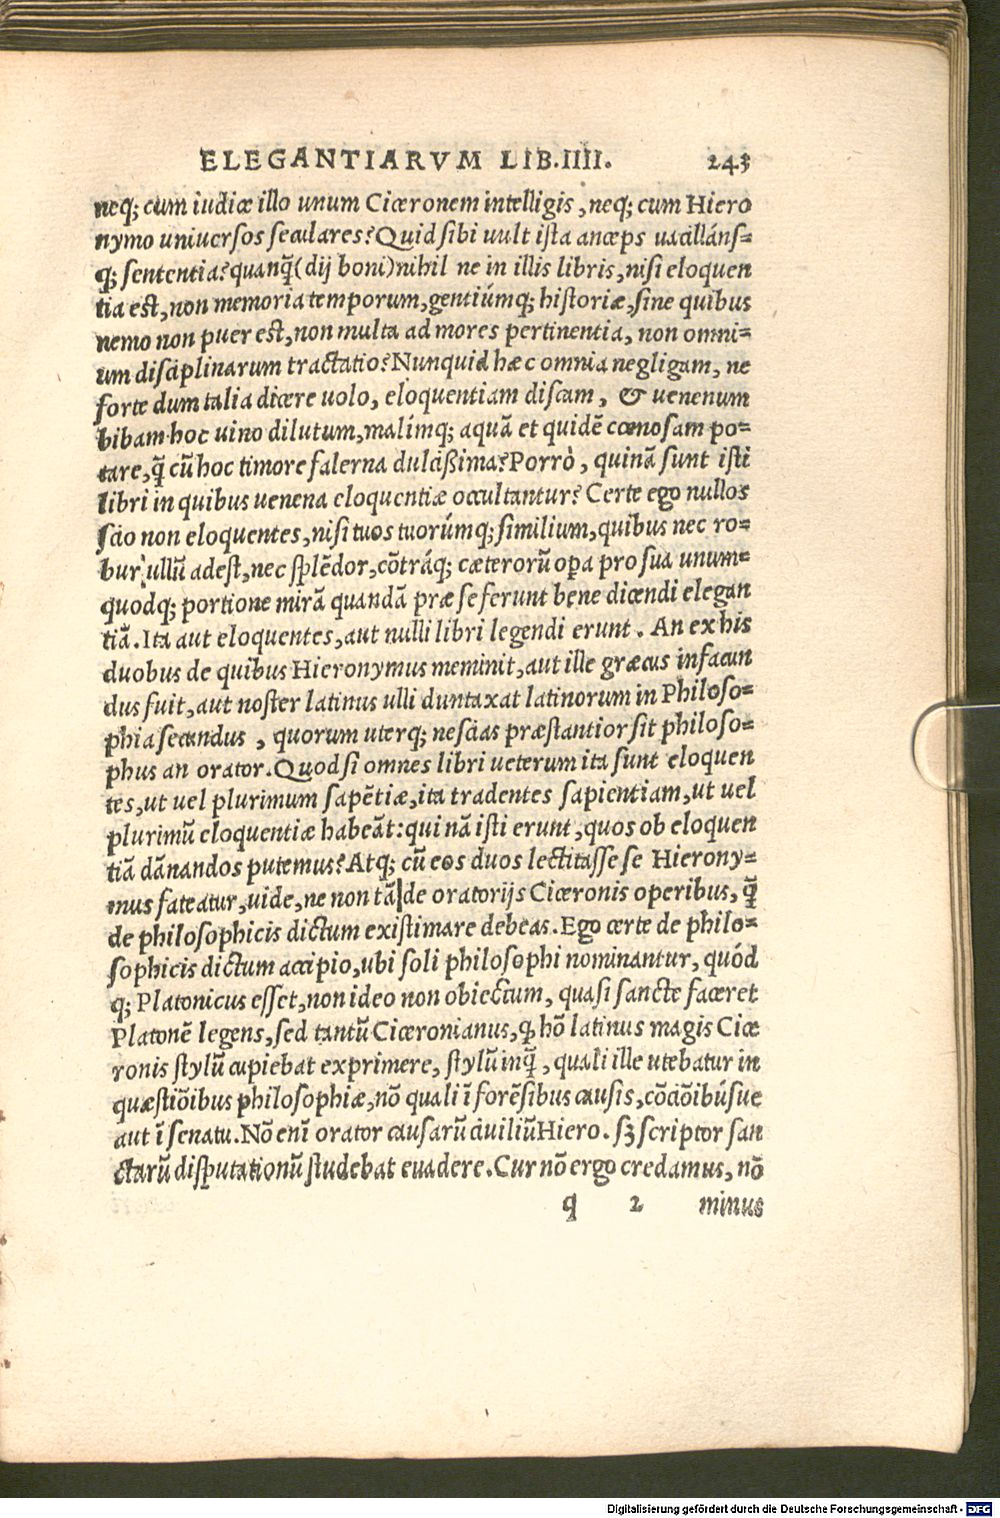 ELEGANTIARVM LIB.IIII. 243
neq; cum iudice illo unum Ciceronem intelligis, neq; cum Hiero
nymo uniuersos seculares? Quid sibi uult ista anceps uacilláns-
q; sententia? quanq̃ (dij boni) nihil ne in illis libris, nisi eloquen
tia est, non memoria temporum, gentiúmq; historiæ, sine quibus
nemo non puer est, non multa ad mores pertinentia, non omni-
um disciplinarum tractatio? Nunquid hæc omnia negligam, ne
forte dum talia dicere uolo, eloquentiam discam, & uenenum
bibam hoc uino dilutum, malímq; aquã et quidẽ cœnosam po-
tare, q̃ cũ hoc timore falerna dulcißima? Porrò, quinã sunt isti
libri in quibus uenena eloquentiæ occultantur? Certe ego nullos
scio non eloquentes, nisi tuos tuorúmq; similium, quibus nec ro-
bur ullũ adest, nec splẽdor, cõtráq; cæterorũ oꝑa pro sua unum-
quodq; portione mirã quandã præ se ferunt bene dicendi elegan
tiã. Ita aut eloquentes, aut nulli libri legendi erunt. An ex his
duobus de quibus Hieronymus meminit, aut ille græcus infacun
dus fuit, aut noster latinus ulli duntaxat latinorum in Philoso-
phia secundus, quorum uterq; nescias præstantior sit philoso-
phus an orator. Quod si omnes libri ueterum ita sunt eloquen
tes, ut uel plurimum sapẽtiæ, ita tradentes sapientiam, ut uel
plurimũ eloquentiæ habeãt: qui nã isti erunt, quos ob eloquen
tiã dãnandos putemus? Atq; cũ eos duos lectitasse se Hierony-
mus fateatur, uide, ne non tã de oratorijs Ciceronis operibus, q̃
de philosophicis dictum existimare debeas. Ego certe de philo-
sophicis dictum accipio, ubi soli philosophi nominantur, quód
q; Platonicus esset, non ideo non obiectum, quasi sancte faceret
Platonẽ legens, sed tantũ Ciceronianus, ꝙ hõ latinus magis Cice
ronis stylũ cupiebat exprimere, stylũ inq̃, quali ille utebatur in
quæstiõibus philosophiæ, nõ quali ĩ forẽsibus causis, cõciõibúsue
aut ĩ senatu. Nõ enĩ orator causarũ ciuiliũ Hiero. sꝫ scriptor san
ctarũ disputationũ studebat euadere. Cur nõ ergo credamus, nõ
q 2 minus
Digitalisierung gefördert durch die Deutsche Forschungsgemeinschaft - DFG